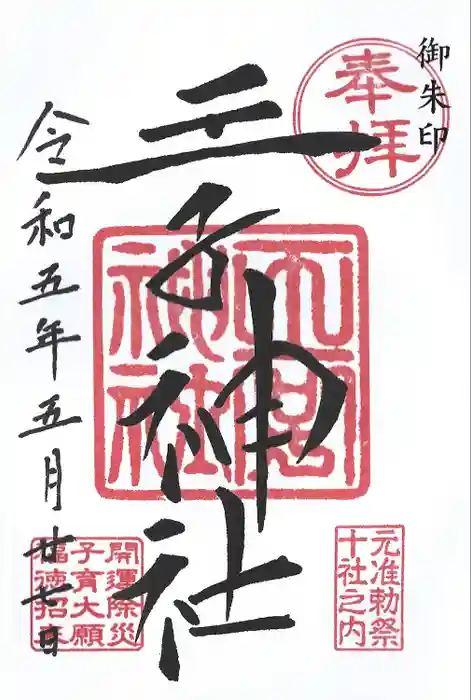 御朱印
奉拝
王子神社
令和五年五月廿七日
元准勅祭
十社之内
開運除災
子育大願
福徳招来